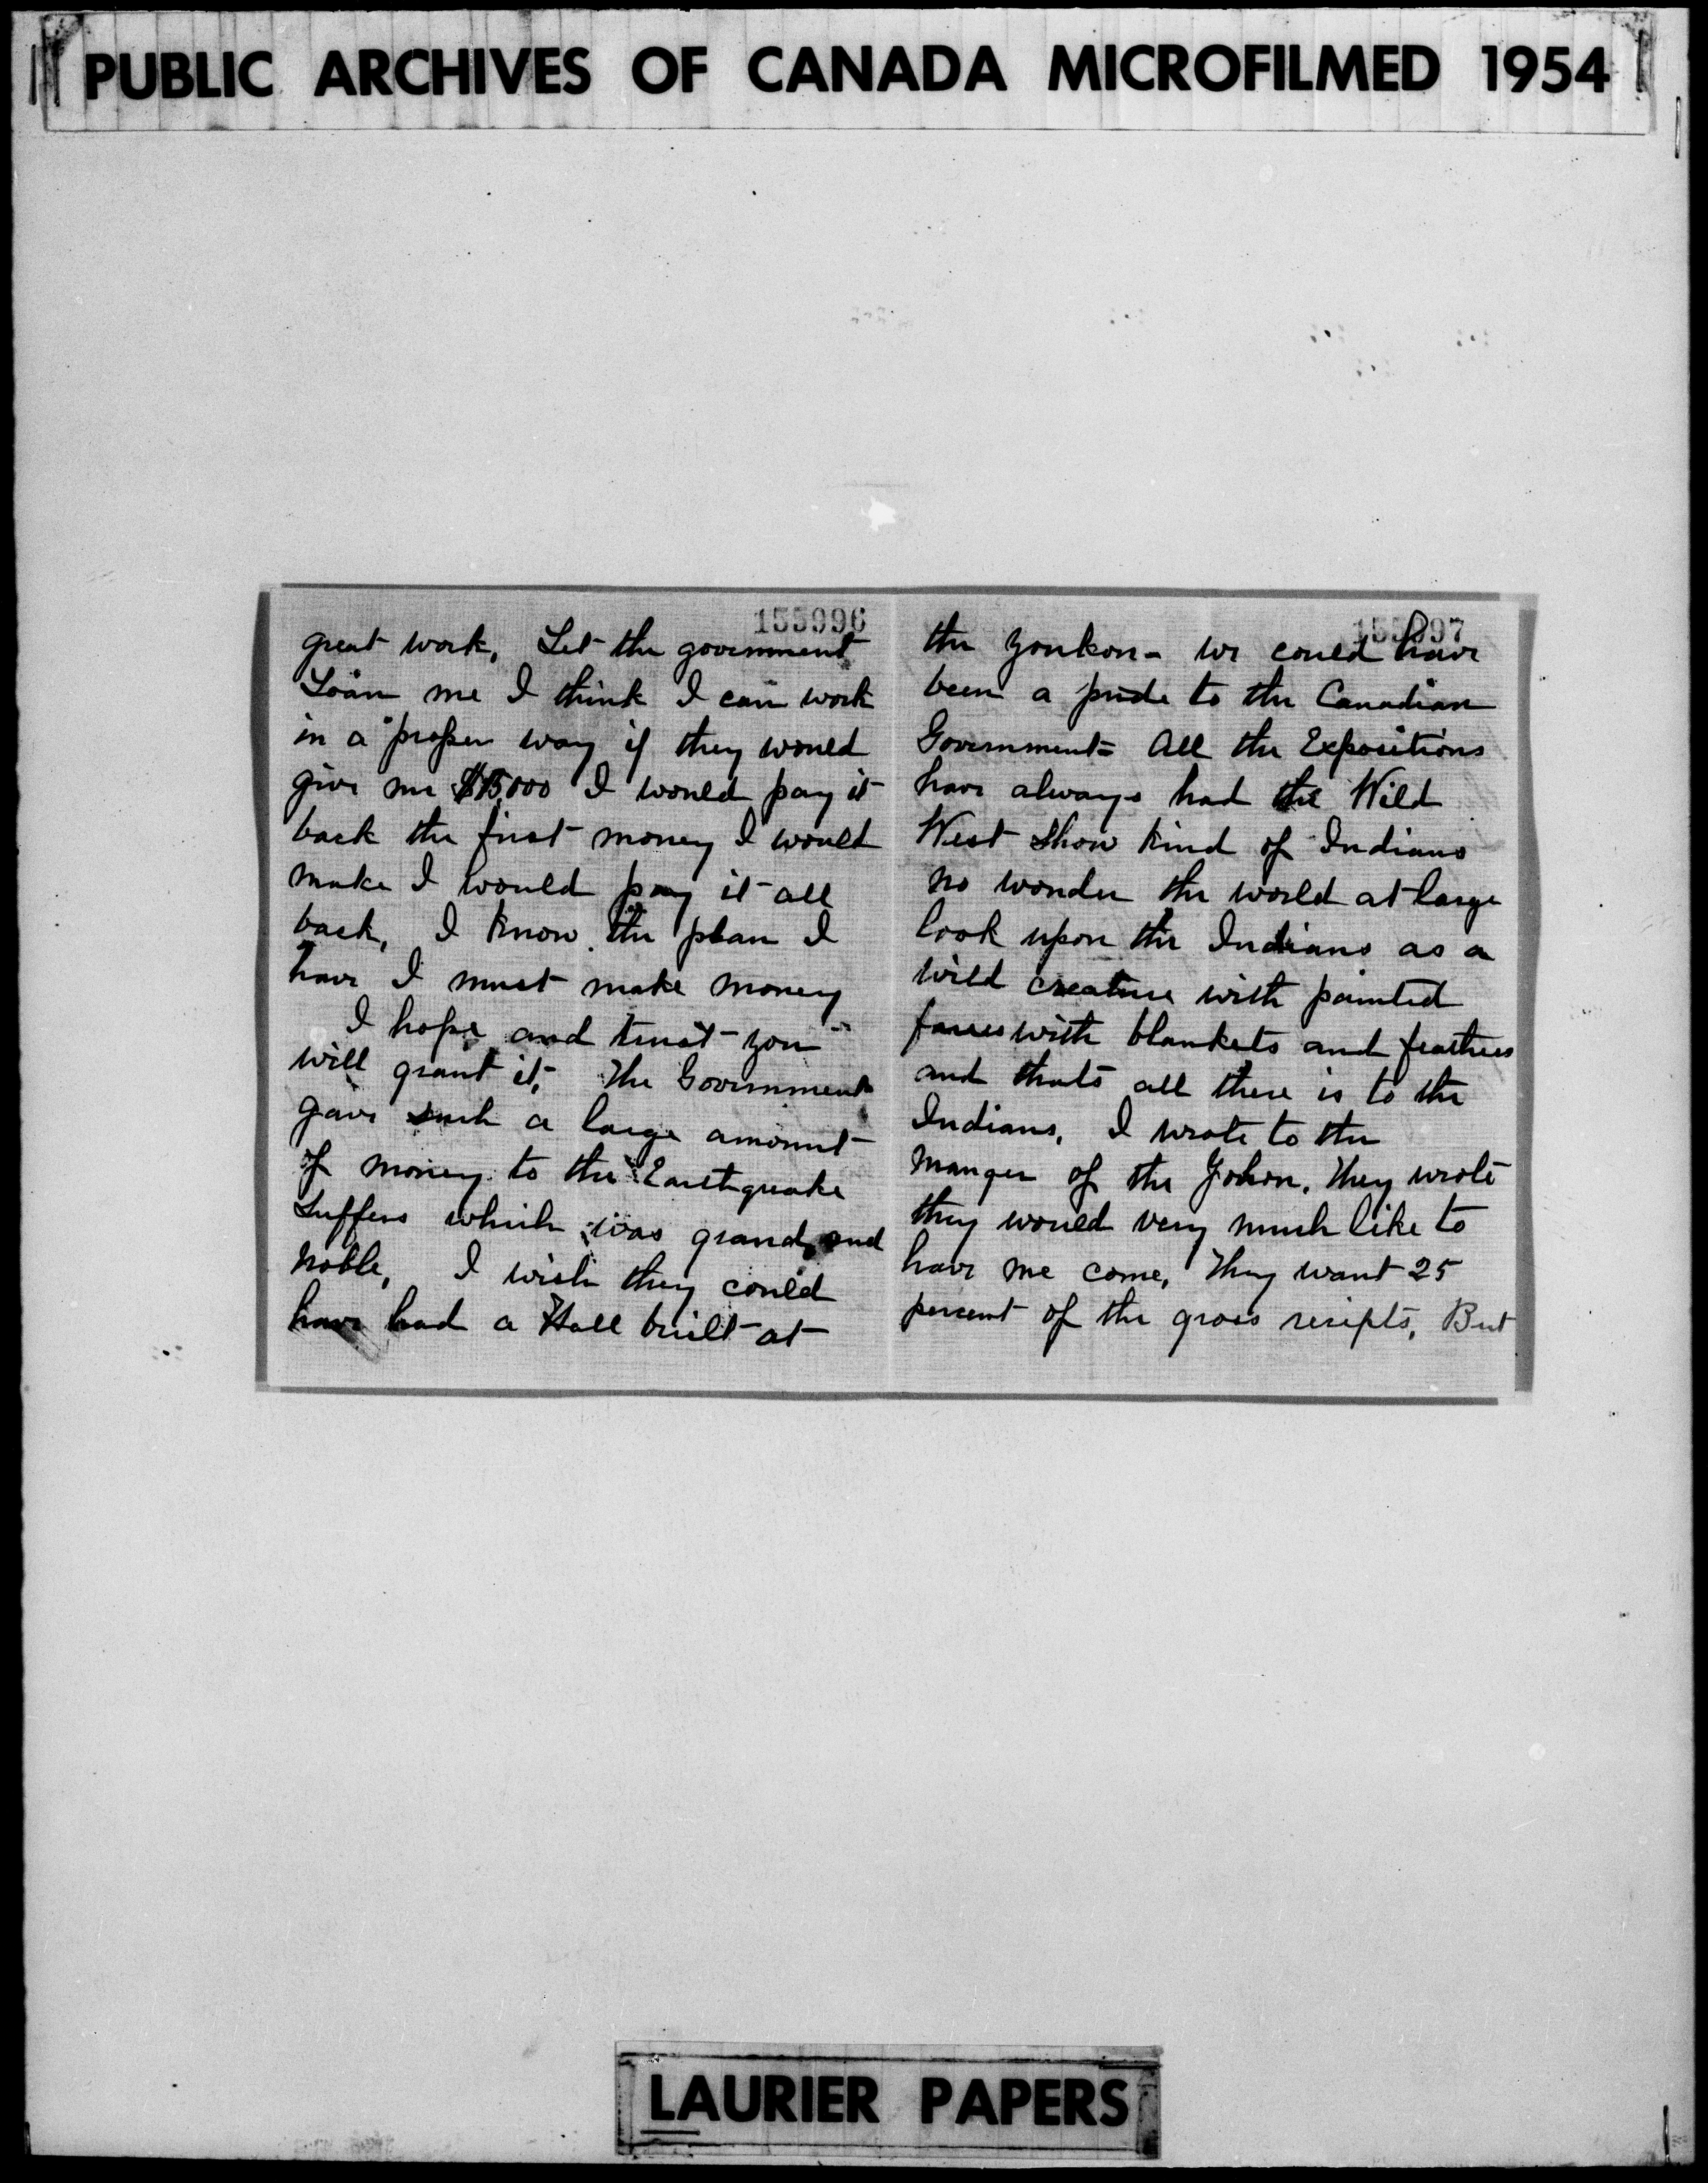 PUBLIC ARCHIVES OF CANADA MICROFILMED 1954
155996
great work, Let the government
Loan me I think I can work
in a proper way if they would
give me $15,000 I would pay it
back the first money I would
make I would pay it all
back, I know the plan I
have I must make money
I hope and trust you
will grant it, The Government
gave such a large amount
of money to the Earthquake
Suffers which was grand and
noble, I wish they could
have had a Hall built at
155997
the Youkon - we could have
been a pride to the Canadian
Government = All the Expositions
have always had the Wild
West Show Kind of Indians
no wonder the world at large
look upon the Indians as a
wild creature with painted
faces with blankets and feathers
and thats all there is to the
Indians, I wrote to the
manger of the Yokon, They wrote
they would very much like to
have me come, They want 25
percent of the gross reciepts, But
LAURIER PAPERS